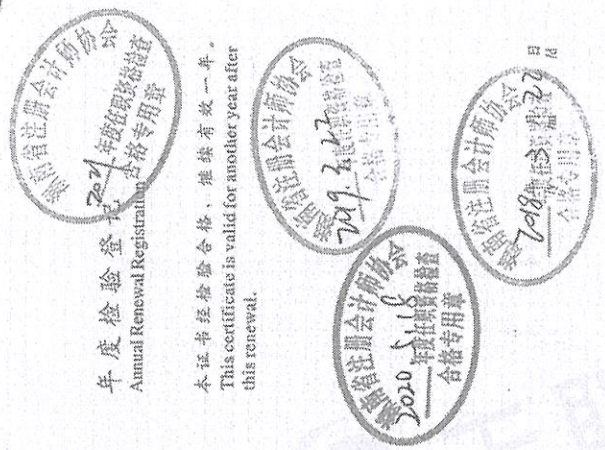 年度检验登记
Annual Renewal Registration
本证书经检验合格，继续有效一年。
This certificate is valid for another year after
this renewal.
湖南省注册会计师协会
2021 年度任职资格检查
合格专用章
湖南省注册会计师协会
2019.3.22
年度任职资格检查
合格专用章
湖南省注册会计师协会
2020 5 18
年度任职资格检查
合格专用章
湖南省注册会计师协会
2018 3 22
年度任职资格检查
合格专用章
月 日